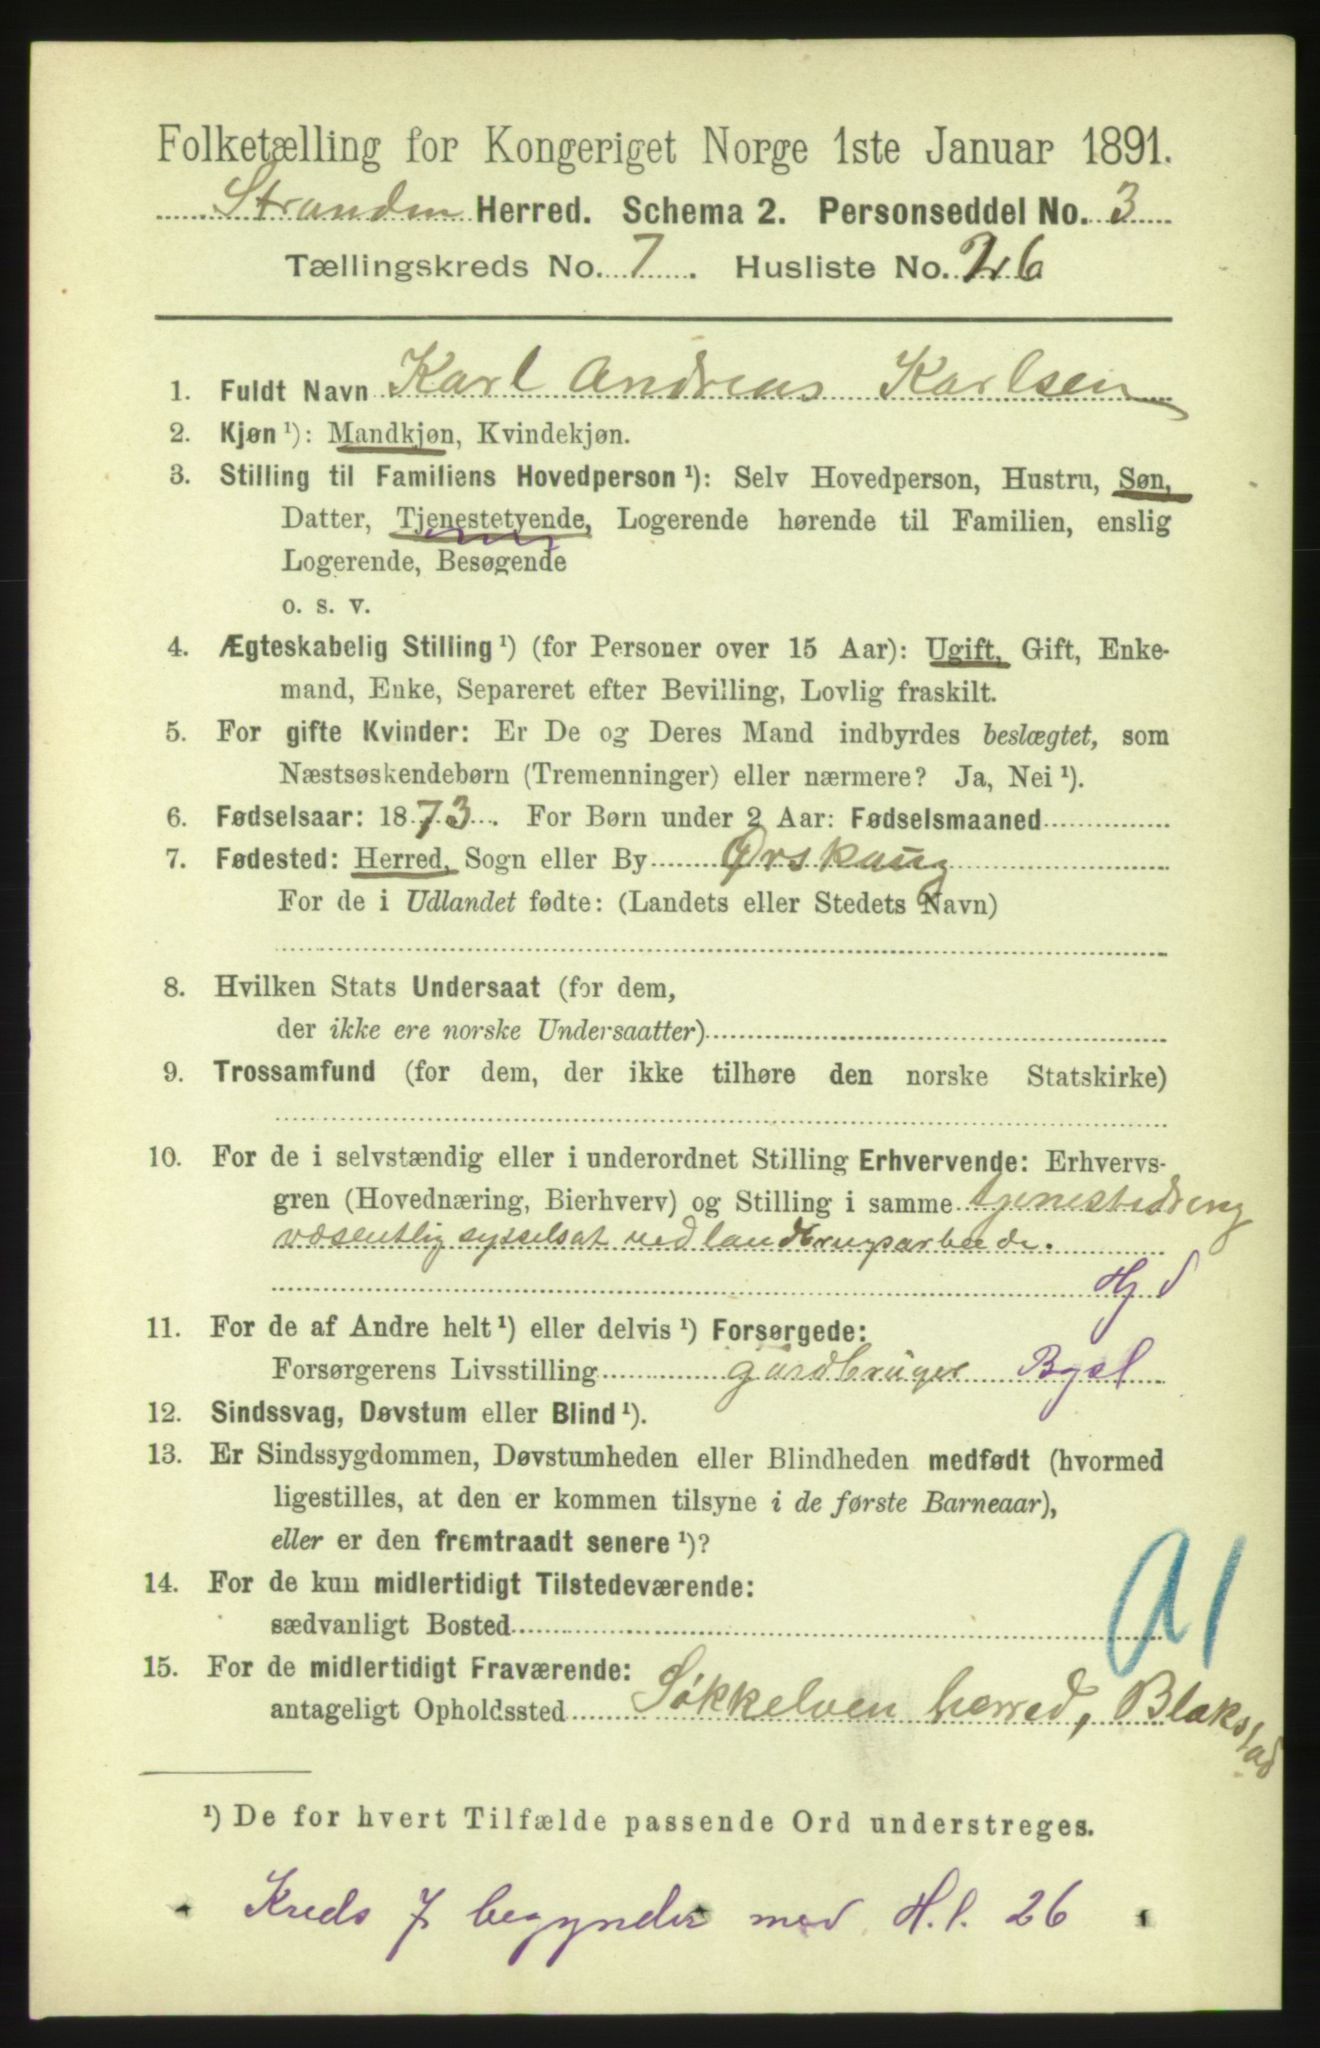 Folketælling for Kongeriget Norge 1ste Januar 1891.
Stranden Herred. Schema 2. Personseddel No. 3
Tællingskreds No. 7. Husliste No. 26
1. Fuldt Navn Karl Andreas Karlsen
2. Kjøn ¹): Mandkjøn, Kvindekjøn.
3. Stilling til Familiens Hovedperson ¹): Selv Hovedperson, Hustru, Søn,
Datter, Tjenestetyende, Logerende hørende til Familien, enslig
Logerende, Besøgende
o. s. v.
4. Ægteskabelig Stilling ¹) (for Personer over 15 Aar): Ugift, Gift, Enke-
mand, Enke, Separeret efter Bevilling, Lovlig fraskilt.
5. For gifte Kvinder: Er De og Deres Mand indbyrdes beslægtet, som
Næstsøskendebørn (Tremenninger) eller nærmere? Ja, Nei ¹).
6. Fødselsaar: 1873. For Børn under 2 Aar: Fødselsmaaned
7. Fødested: Herred, Sogn eller By Ørskaug
For de i Udlandet fødte: (Landets eller Stedets Navn)
8. Hvilken Stats Undersaat (for dem,
der ikke ere norske Undersaatter)
9. Trossamfund (for dem, der ikke tilhøre den norske Statskirke)
10. For de i selvstændig eller i underordnet Stilling Erhvervende: Erhvervs-
gren (Hovednæring, Bierhverv) og Stilling i samme tjenestedreng
væsentlig sysselsat ved landbrugsarbeide.
Hj d
11. For de af Andre helt ¹) eller delvis ¹) Forsørgede:
Forsørgerens Livsstilling gårdbruger Bgsl
12. Sindssvag, Døvstum eller Blind ¹).
13. Er Sindssygdommen, Døvstumheden eller Blindheden medfødt (hvormed
ligestilles, at den er kommen tilsyne i de første Barneaar),
eller er den fremtraadt senere ¹)?
14. For de kun midlertidigt Tilstedeværende:
sædvanligt Bosted
15. For de midlertidigt Fraværende:
antageligt Opholdssted Søkkelven herred, Blakstad
¹) De for hvert Tilfælde passende Ord understreges.
Kreds 7 begynder med H.l. 26